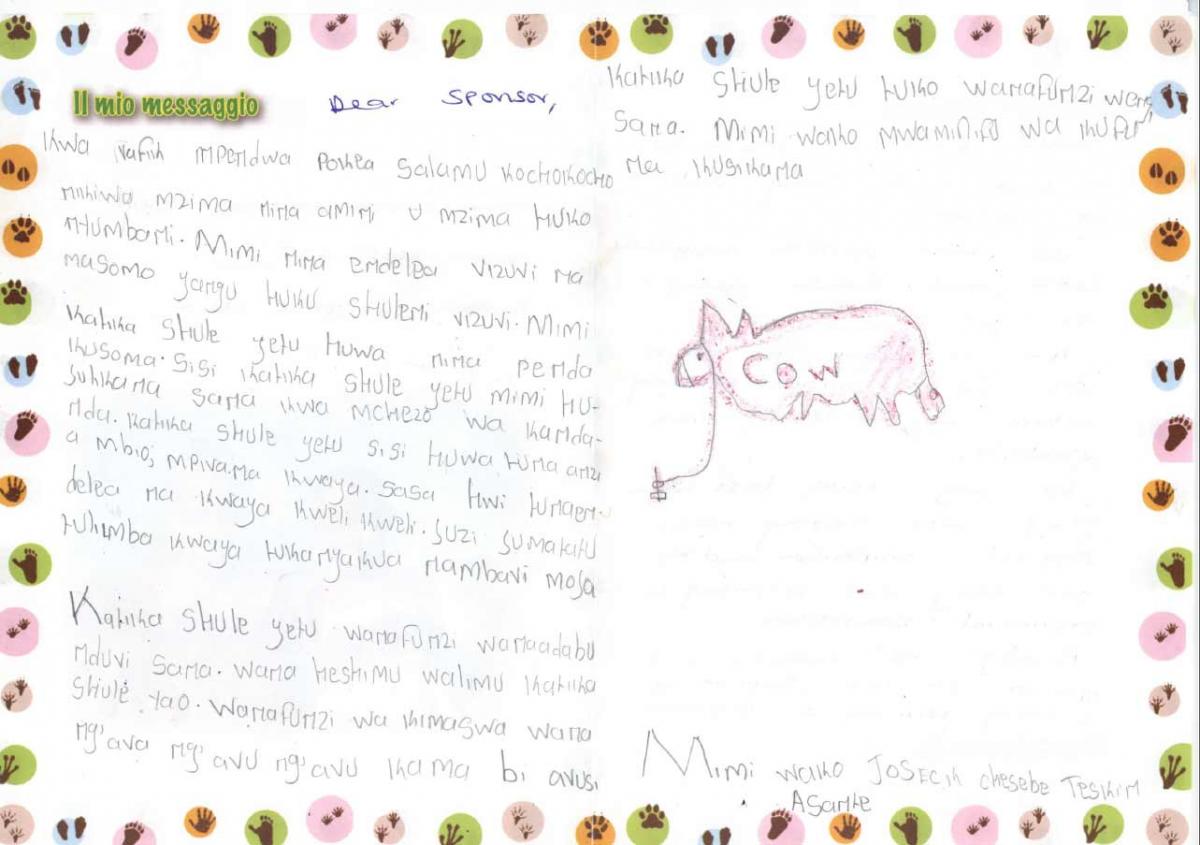 Il mio messaggio Dear Sponsor,
Kwa rafiki mpendwa pokea salamu kochokocho
nikiwa mzima nina amini u mzima huko
nyumbani. Mimi nina endelea vizuvi na
masomo yangu huku shuleni vizuvi. Mimi
Katika shule yetu huwa nina penda
kusoma. Sisi katika shule yetu mimi hu-
shikana sana kwa mchezo wa kanda-
nda. Katika shule yetu sisi huwa tuna
a mbio, mpiva na kwaya. Sasa hivi tunaen-
delea na kwaya kweli kweli. Juzi jumatatu
tuliimba kwaya tukanyakua nambavi mosa
Katika shule yetu wanafunzi wanaadabu
nduvi sana. Wana heshimu walimu katika
shule yao. Wanafunzi wa kimaswa wana
ng'ava ng'avu ng'avu kama bi avusi
Katika shule yetu kuko wanafunzi
sana. Mimi wako mwaminifu wa
na kushikana
Cow
Mimi wako Josecik chesebe Teskim
Asante